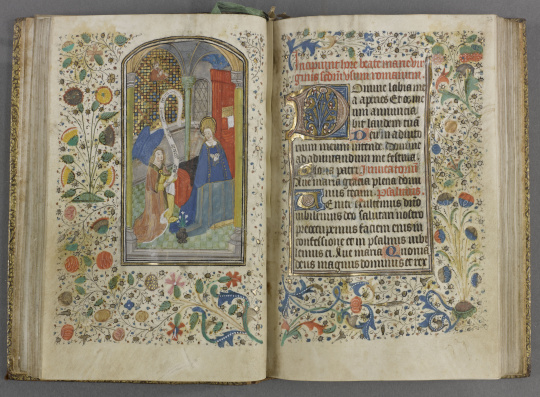 Incipiunt hore beate marie vir
ginis scdm usum romanum
Domine labia me
a aperies Et os me
um annuncia
bit laudem tuã
Deus in adiuto
rium meum intende Domine
ad adiuvandum me festina
Gloria patri Invitatoriũ
Ave maria gracia plena domi
nus tecum Psalmus
Venite exultemus dño
iubilemus deo salutari nostro
preoccupemus faciem eius in
confessione et in psalmis iubi
lemus ei Ave maria Quoniã
deus magnus dominus et rex